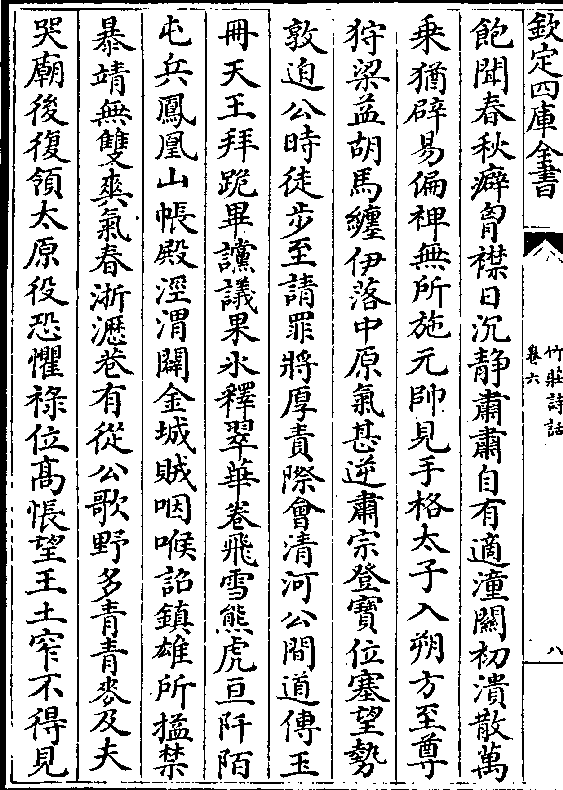 欽定四庫全書
竹莊詩話
卷六
八
飽聞春秋癖胷襟日沉静肅肅自有適潼關初潰散萬
乗猶辟易偏裨無所施元帥見手格太子入朔方至尊
狩梁益胡馬纏伊落中原氣甚逆肅宗登寶位塞望勢
敦迫公時徒步至請罪將厚責際會清河公間道傳玉
冊天王拜跪畢讜議果氷釋翠華卷飛雪熊虎亘阡陌
屯兵鳳凰山帳殿涇渭闢金城賊咽喉詔鎮雄所搤禁
暴靖無雙爽氣春淅瀝巷有從公歌野多青青麥及夫
哭廟後復領太原役恐懼禄位髙悵望王土窄不得見